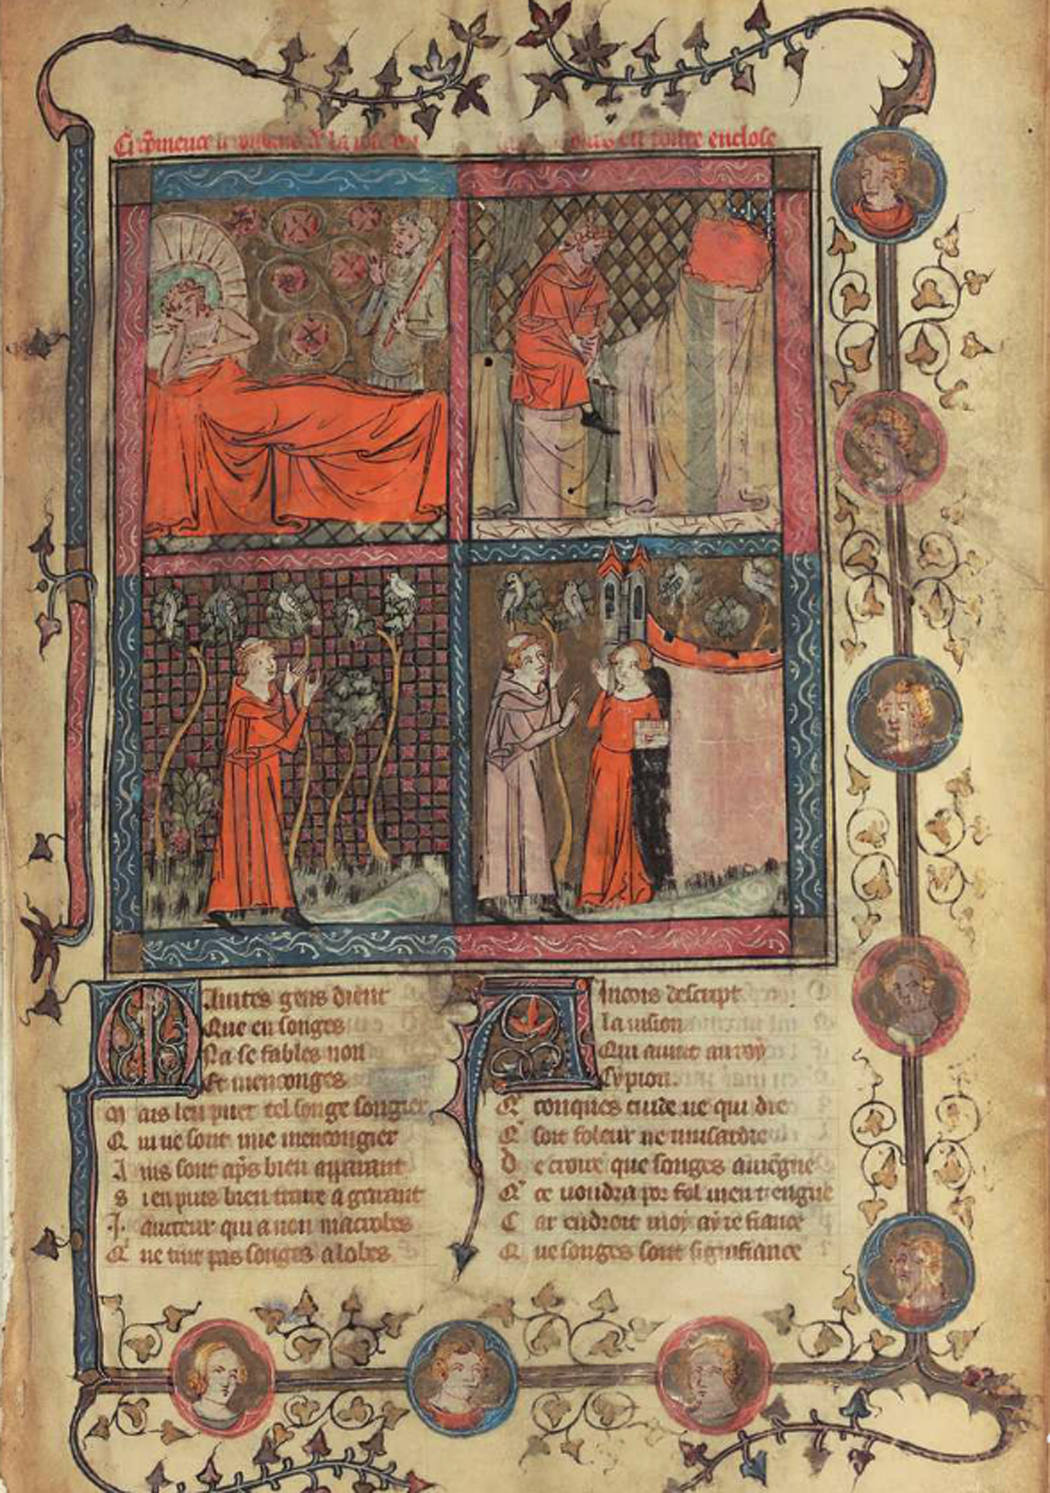 la rose
est toute enclose
Maintes gens dient
Que en songes
Na se fables non
Et menconges
Mais len puet tel songe songier
Qui ne sont mie mencongier
Ains sont aps bien apparant
Si en puis bien traire a garant
.I. aucteur qui a non macrobes
Qui ne tint pas songes a lobes
Aincois descript
la uision
Qui auint au roy
Cypion
Quiconques cuide ne qui die
Que soit foleur ne musardie
De croire que songes auiegne
Qui ce uoudra por fol men tiengne
Car endroit moy ay ie fiance
Que songes sont signifiance